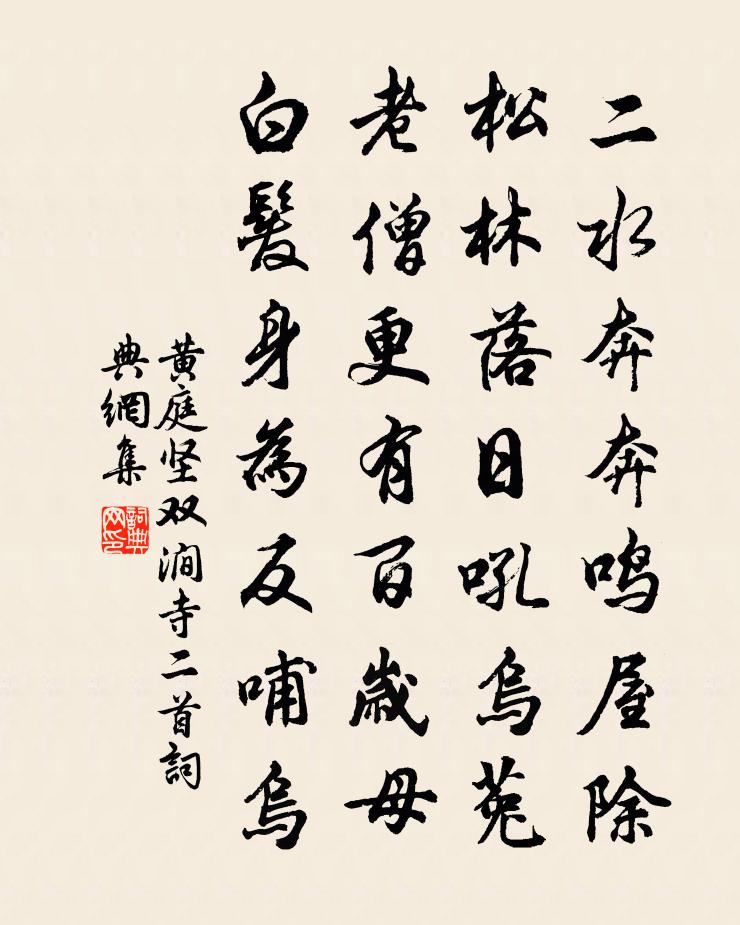 二水奔奔鸣屋除
松林落日吼烏菟
老僧更有百歲母
白髮身為反哺烏
黄庭坚双涧寺二首詞
典網集
詞典
网印